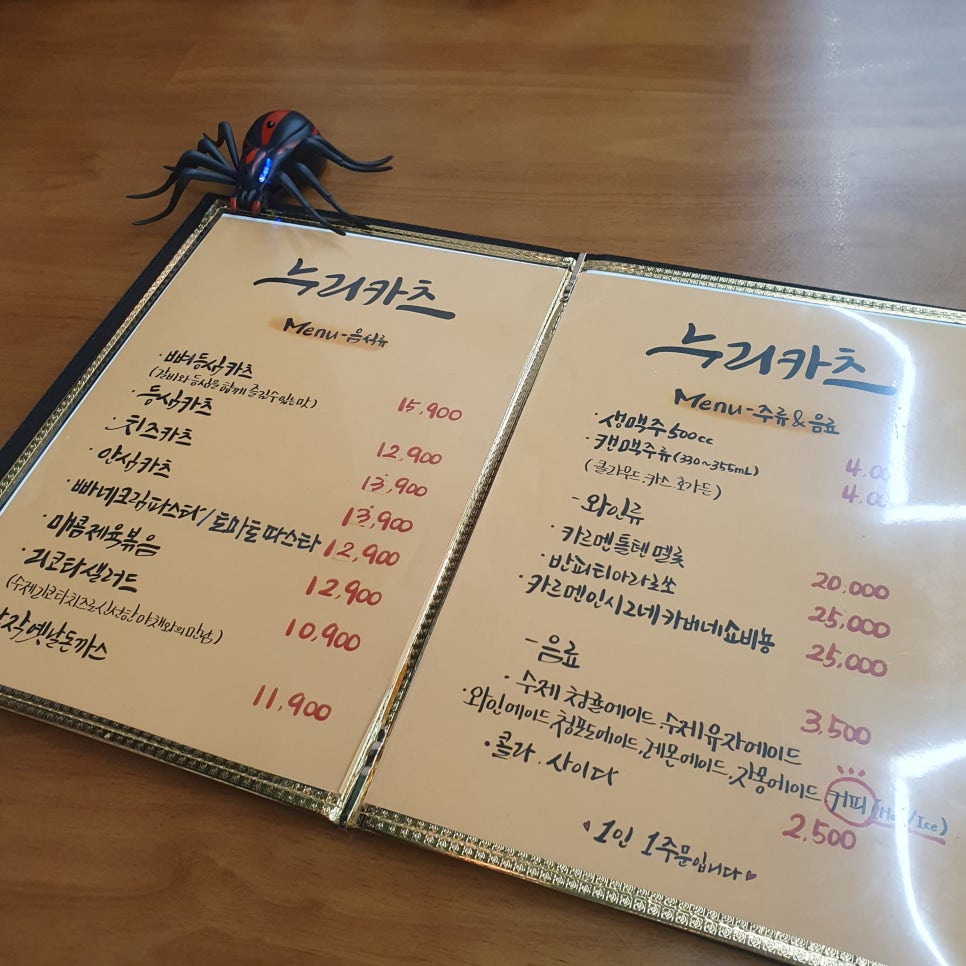 누리카츠
Menu-음식류
·뼈등심카츠
(갈비와 등심을 함께 즐길수있는맛)
15,900
·등심카츠
12,900
·치즈카츠
13,900
·안심카츠
13,900
·빠네크림파스타/토마토파스타
12,900
·매콤제육볶음
12,900
·리코타샐러드
10,900
(수제리코타치즈로신선한야채와의만남)
옛날돈까스
11,900
누리카츠
Menu-주류&음료
·생맥주500cc
·캔맥주류(330~355mL)
(클라우드.카스.호가든)
-와인류
·카르멘톨텐멜롯
20,000
·반피티아라로쏘
25,000
·카르멘인시그네카버네쇼비뇽
25,000
-음료
·수제청귤에이드,수제유자에이드
3,500
·와인에이드,청포도에이드,레몬에이드,자몽에이드 커피(Hot/Ice)
·콜라.사이다
2,500
1인 1주문입니다♥